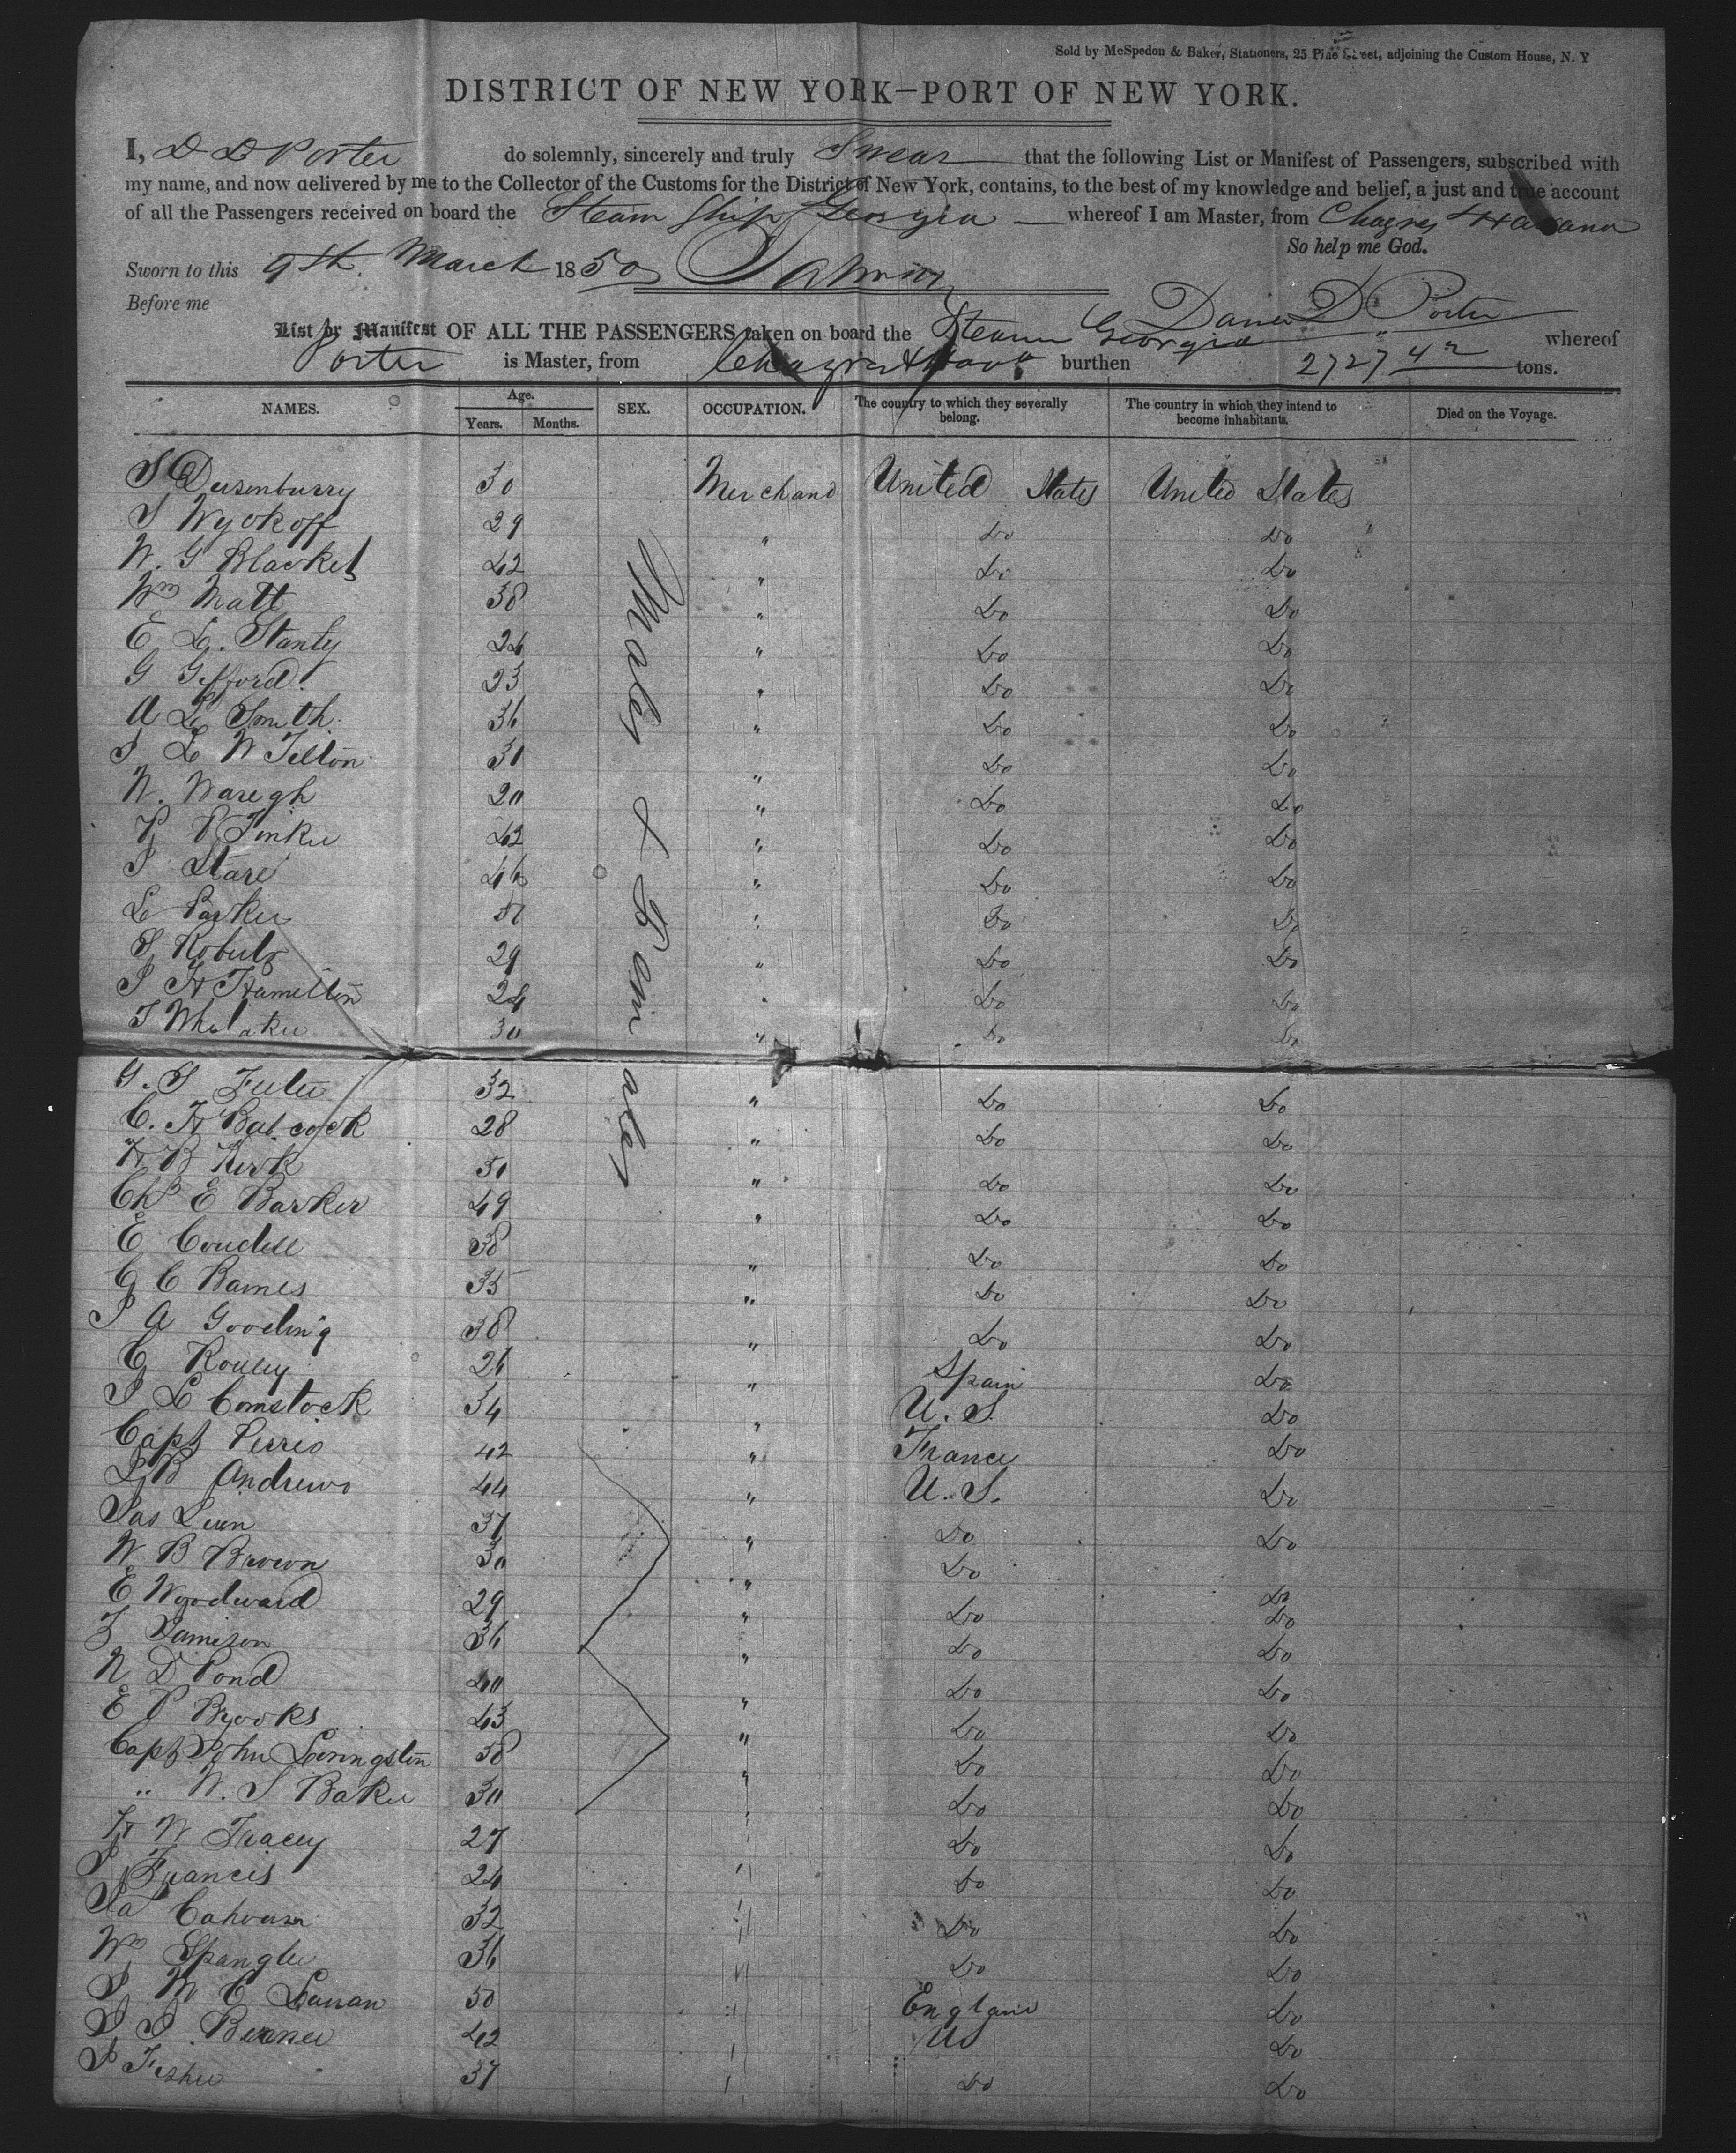 Sold by McSpedon & Baker, Stationers, 25 Pine Street, adjoining the Custom House, N. Y
DISTRICT OF NEW YORK—PORT OF NEW YORK.
I, D D Porter do solemnly, sincerely and truly Swear that the following List or Manifest of Passengers, subscribed with
my name, and now delivered by me to the Collector of the Customs for the District of New York, contains, to the best of my knowledge and belief, a just and true account
of all the Passengers received on board the Steam Ship Georgia whereof I am Master, from Chagres & Havana
So help me God.
Sworn to this 9th. March 1850
Before me
David D Porter
List or Manifest OF ALL THE PASSENGERS taken on board the Steamer Georgia whereof
Porter is Master, from Chagres & Hava burthen 2727 42 tons.
NAMES. Age. Years. Months. SEX. OCCUPATION. The country to which they severally belong. The country in which they intend to become inhabitants. Died on the Voyage.
Males & Females
S Dusenburry 30 Merchand United States United States
S Wyckoff 29 " Do Do
W. G Blacket 42 " Do Do
Wm Matt 38 " Do Do
E L. Stanly 24 " Do Do
G Gifford. 23 " Do Do
A L Smith. 36 " Do Do
S L W Tilton 30 " Do Do
W. 20 " Do Do
P Tinker 42 " Do Do
S Stare 46 " Do Do
L Parker 37 " Do Do
S Roberts 29 " Do Do
S H Hamilton 24 " Do Do
T Whitaker 30 " Do Do
G. S 32 " Do Do
C. H Babcock 28 " Do Do
H B Kirk 30 " Do Do
Chs E Barker 49 " Do Do
E 38 " Do Do
G C Barnes 35 " Do Do
S A Gooding 38 " Do Do
G 26 " Spain Do
S L Comstock 34 " U. S. Do
Capt 42 " France Do
B Andrews 44 " U. S. Do
Jas 37 " Do Do
W B Brown 30 " Do Do
E Woodward 29 " Do Do
Jamison 36 " Do Do
N D Pond 40 " Do Do
E P Brooks 43 " Do Do
Capt John Livingston 38 " Do Do
" W. S Baker 30 " Do Do
H W Tracey 27 " Do Do
S Francis 24 " Do Do
Cahoun 32 " Do Do
Wm Spangler 36 " Do Do
S M C 50 " England Do
S S 42 " US Do
S Fisher 37 " Do Do